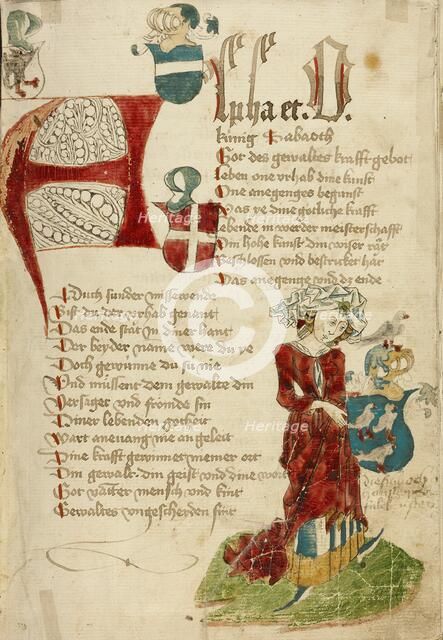 Alpha et. O.
künig Sabaoth
Got des gewaltes krafft gebot
Leben one vrhab dine kunst
One anegenges begunst
Was ye dine götliche krafft
Lebende in werder meisterschafft
Din hohe kunst din wiser rat
Beschlossen vnd bestricket hat
Das anegenge vnd dz ende
Duch sunder missewende
Bist du der vrhab genant
Das ende stat in diner hant
Der beyder name were du ye
Doch gewunne du su nie
Vnd müssent dem gewalte din
Versaget vnd frömde sin
Diner lebenden gotheit
Wart anevang nie an geleit
Dine krafft gewinnet niemer ort
Din gewalt din geist vnd dine wort
Got vatter mensch vnd kint
Gewaltes vngescheyden sint
Heritage
Heritage
Heritage
Heritage